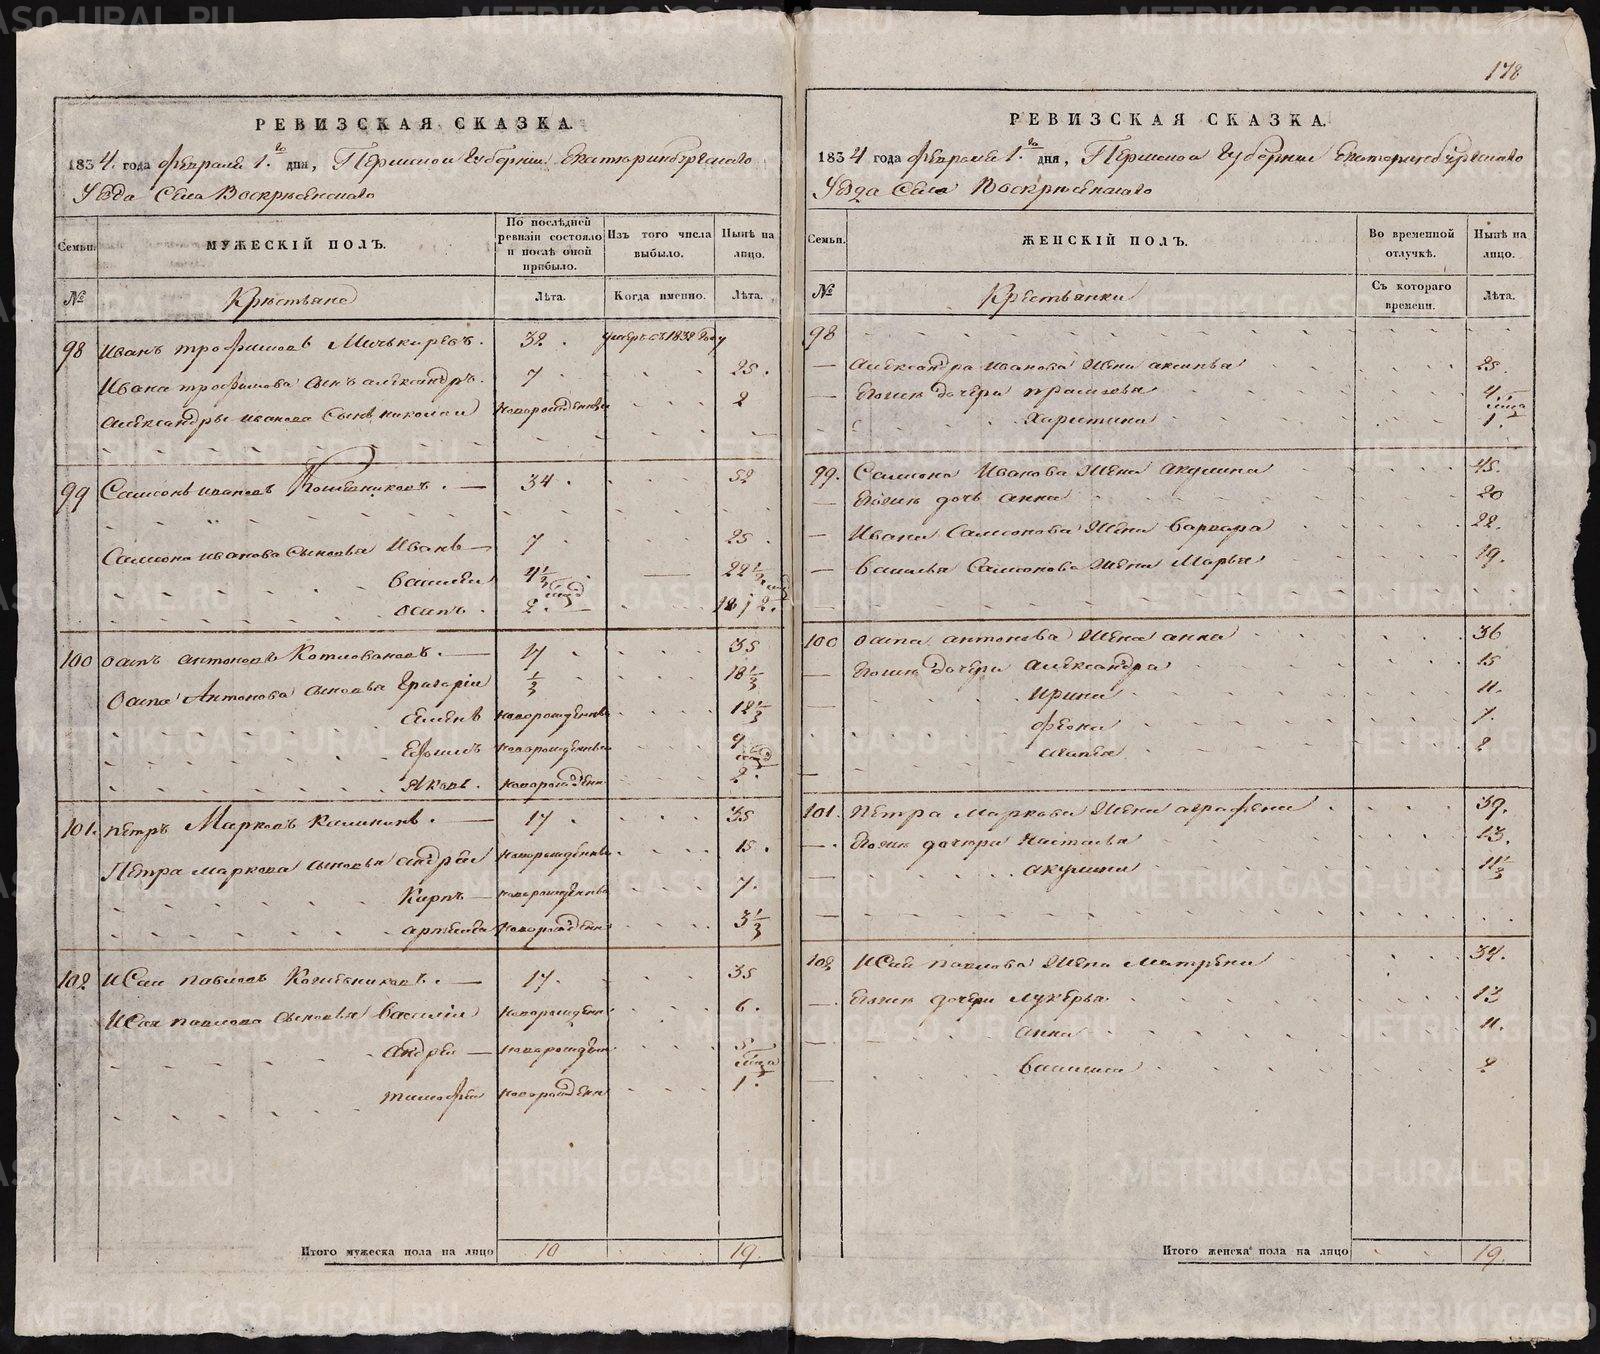 178
РЕВИЗСКАЯ СКАЗКА.
1834 года февраля 1го дня, Пермской Губернии Екатеринбургскаго
Уѣзда Села Воскресенскаго
Семьи.
МУЖЕСКІЙ ПОЛЪ.
По послѣдней ревизіи состояло и послѣ оной прибыло.
Изъ того числа выбыло.
Нынѣ на лицо.
№
Крестьяне
Лѣта.
Когда именно.
Лѣта.
98 Иванъ трофимовъ 32. умеръ въ 1832 году
Ивана трофимова сынъ александръ. 7 25.
Александры иванова Сынъ николаи новорожденны 2
99 Самсонъ ивановъ 34. 52
Самсона иванова Сыновья Иванъ 7 25.
Василеи 4 1/3 22 1/3
осипъ. 2. 18 / 2.
100 осипъ антоновъ Котловановъ. 17 35
Осипа Антонова сыновья Григореи 1/3 18 1/3
Семенъ новорожденны 12 1/3
Ефимъ новорожденны 4
Яковъ. новорожден 2.
101. петръ Марковъ Калининъ. 17. 35
Петра маркова сыновья андреи новорожденны 15.
Карпъ новорожденны 7.
артемеи новорожден 3 1/3
102 Исаи павловъ 17. 35
Исая павлова Сыновья Василіи новорожден 6.
андреи новорожден 5
тимофеи новорожден 1.
Итого мужеска пола на лицо 10 19.
РЕВИЗСКАЯ СКАЗКА.
1834 года февраля 1го дня, Пермской Губернии Екатеринбургскаго
Уѣзда Села Воскресенскаго
Семьи.
ЖЕНСКІЙ ПОЛЪ.
Во временной отлучкѣ.
Нынѣ на лицо.
№
Крестьянки
Съ котораго времени.
Лѣта.
98
Александра иванова Жена аксинья 25.
Егожъ дочери 4
Харитина 1.
99. Самсона Иванова Жена акулина 45.
Егожъ дочь анна 20
Ивана Самсонова Жена варвара 22.
Василья Самсонова Жена Марья 19.
100 осипа антонова Жена анна 36
Егожъ дочери александра 15
ирина 11.
феона 7.
2
101. Петра Маркова Жена аграфена 39.
Егожъ дочери Настасья 13.
акулина 11 1/3
102 Исаи павлова Жена Матрена 34.
Егожъ дочери лукерья 13
анна 11.
Василиса 2
Итого женска пола на лицо 19.
METRIKI.GASO-URAL.RU